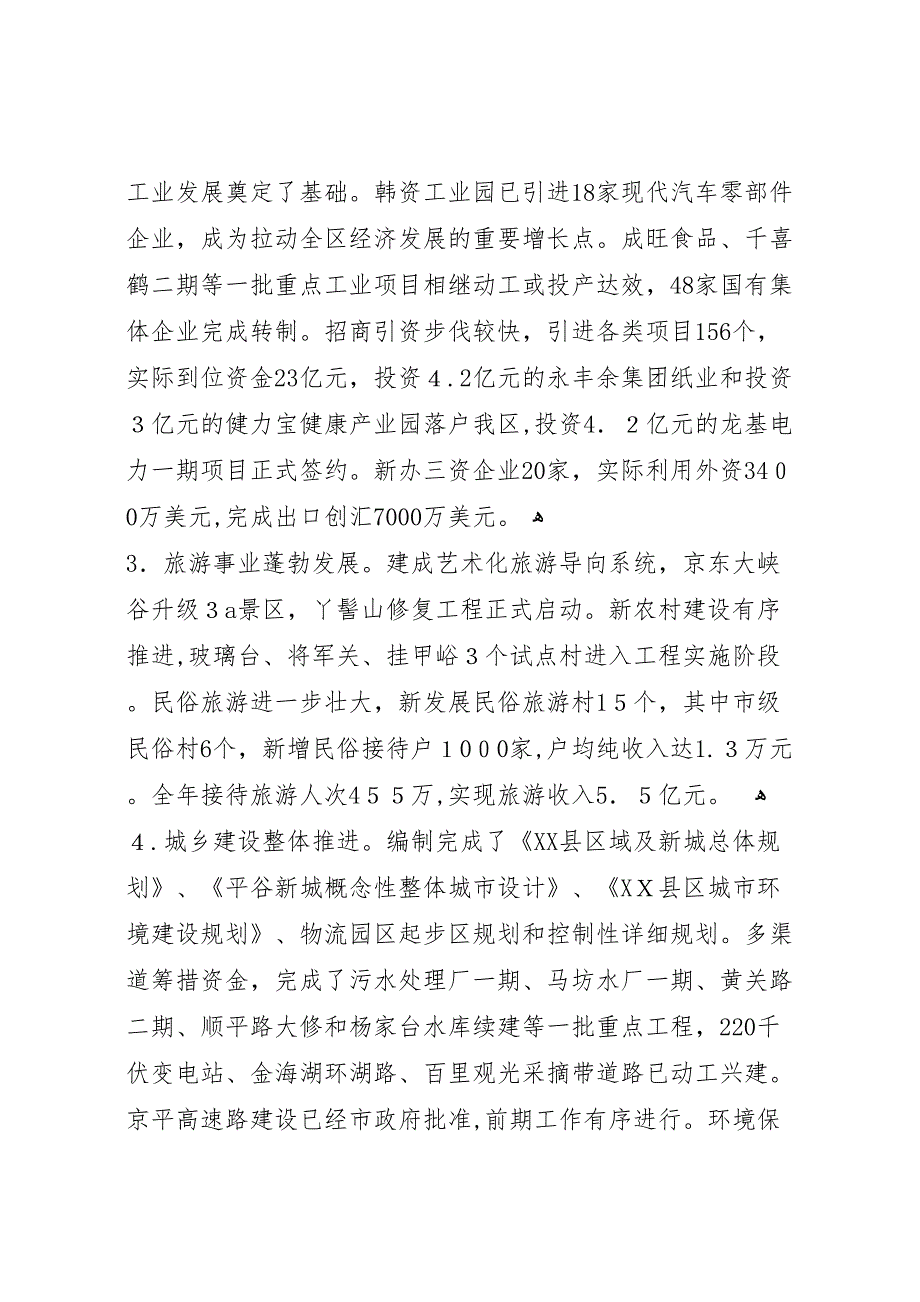 工业发展奠定了基础。韩资工业园已引进18家现代汽车零部件
企业，成为拉动全区经济发展的重要增长点。成旺食品、千喜
鹤二期等一批重点工业项目相继动工或投产达效，48家国有集
体企业完成转制。招商引资步伐较快，引进各类项目156个，
实际到位资金23亿元，投资４.2亿元的永丰余集团纸业和投资
３亿元的健力宝健康产业园落户我区,投资4．２亿元的龙基电
力一期项目正式签约。新办三资企业20家，实际利用外资34０
0万美元,完成出口创汇7000万美元。 ﻬ
3．旅游事业蓬勃发展。建成艺术化旅游导向系统，京东大峡
谷升级３a景区，丫髻山修复工程正式启动。新农村建设有序
推进,玻璃台、将军关、挂甲峪３个试点村进入工程实施阶段
。民俗旅游进一步壮大，新发展民俗旅游村1５个，其中市级
民俗村6个，新增民俗接待户１0００家,户均纯收入达1.３万元
。全年接待旅游人次4５５万,实现旅游收入5．５亿元。 ﻬ
４.城乡建设整体推进。编制完成了《XX县区域及新城总体规
划》、《平谷新城概念性整体城市设计》、《XＸ县区城市环
境建设规划》、物流园区起步区规划和控制性详细规划。多渠
道筹措资金，完成了污水处理厂一期、马坊水厂一期、黄关路
二期、顺平路大修和杨家台水库续建等一批重点工程，220千
伏变电站、金海湖环湖路、百里观光采摘带道路已动工兴建。
京平高速路建设已经市政府批准,前期工作有序进行。环境保